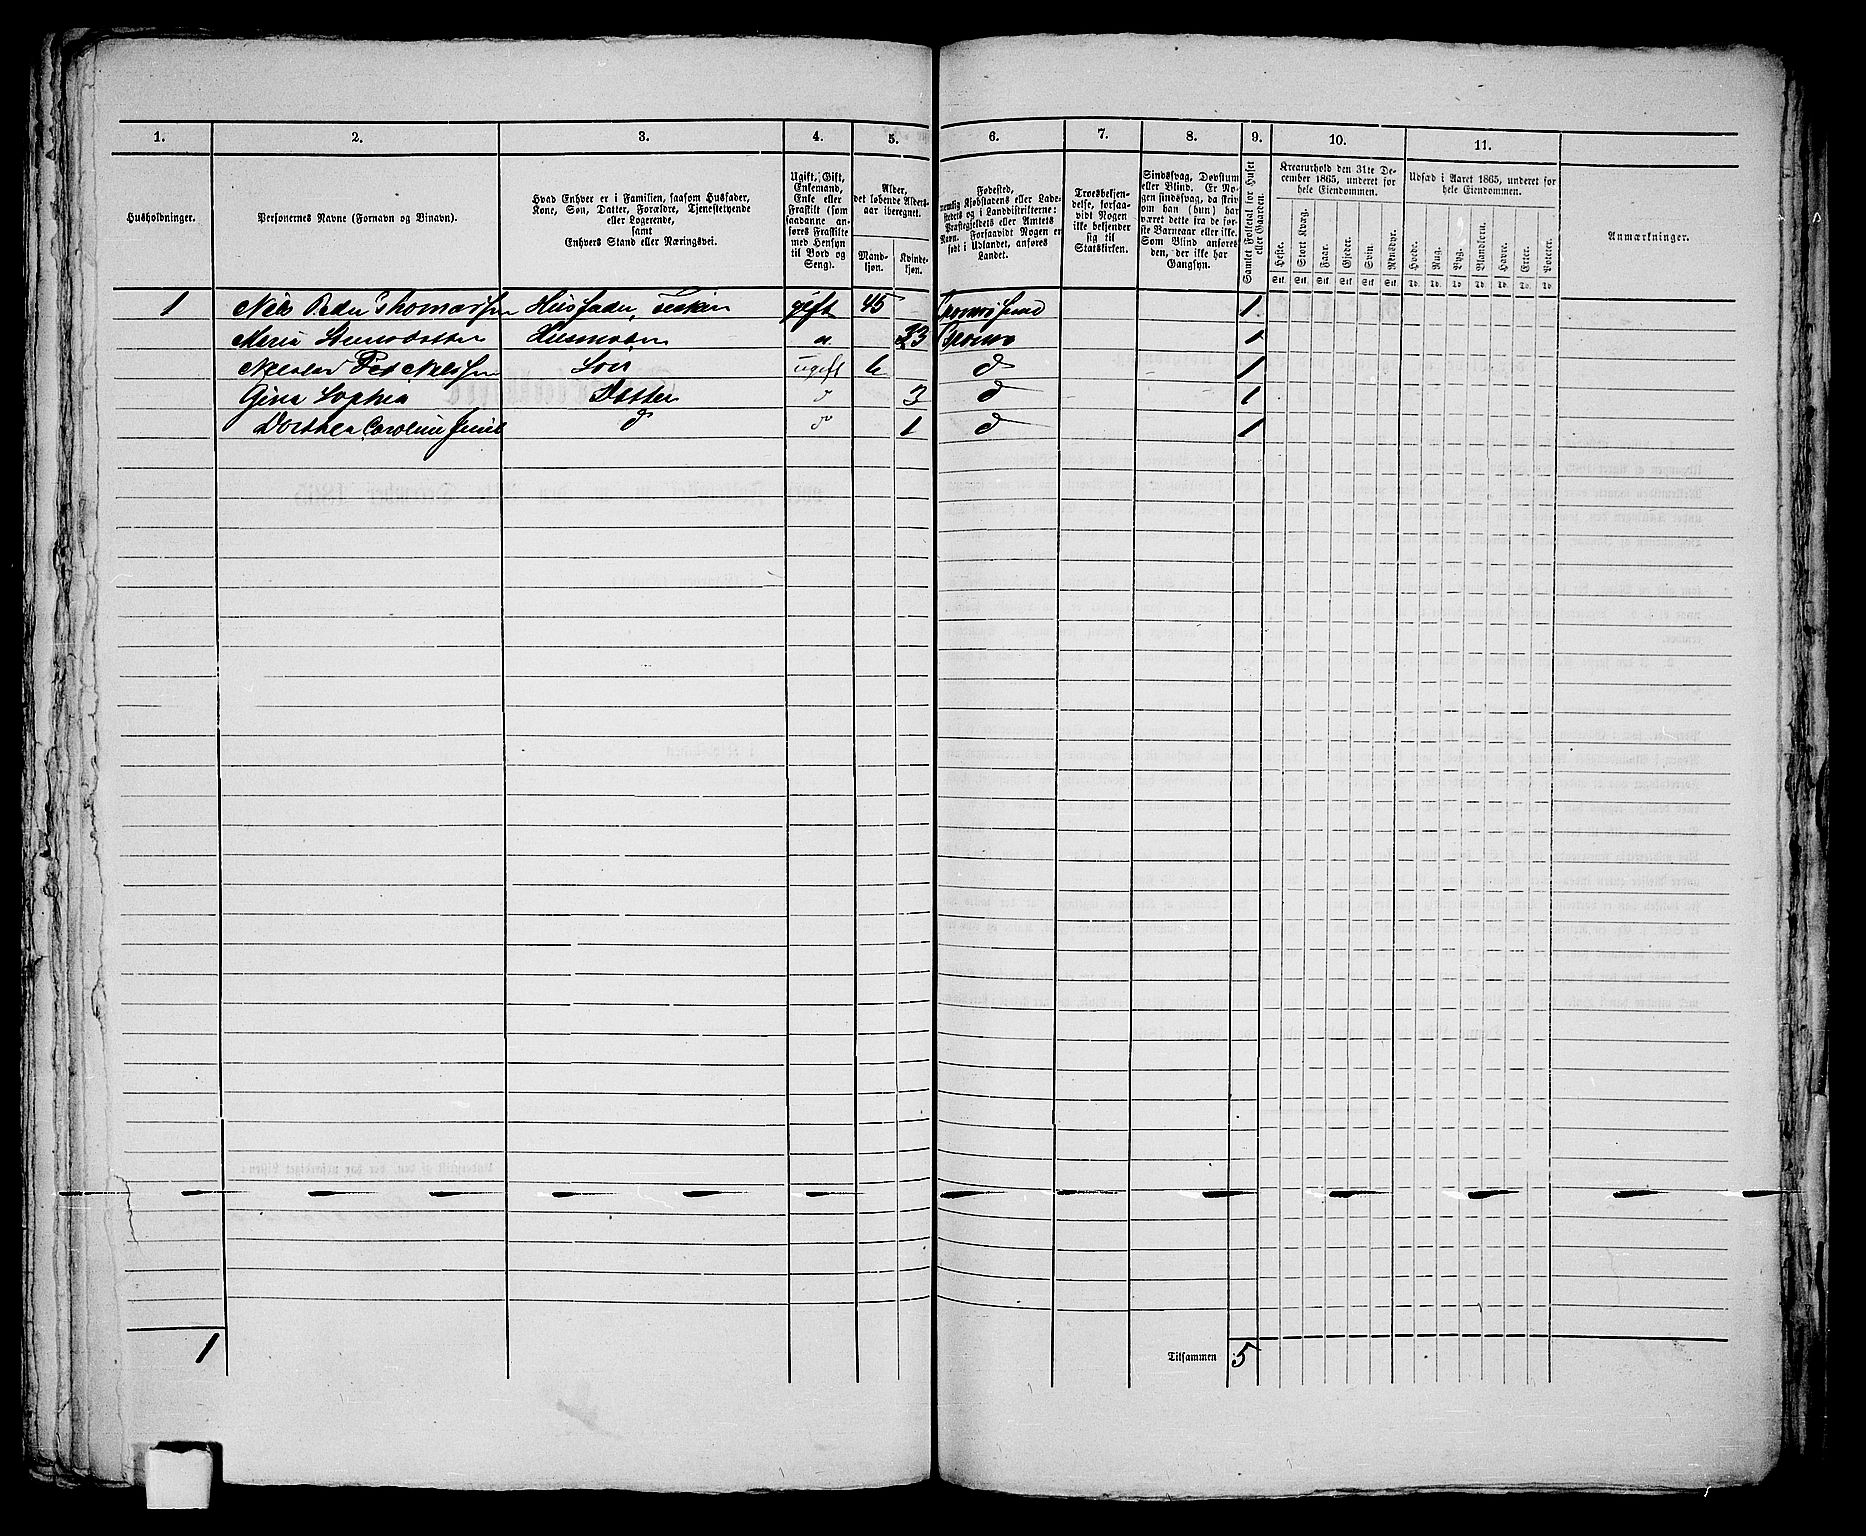 1. 2. 3. 4. 5. 6. 7. 8. 9. 10. 11.
Husholdninger.
Personernes Navne (Fornavn og Binavn).
Hvad Enhver er i Familien, saasom Husfader,
Kone, Søn, Datter, Forældre, Tjenestetyende
eller Logerende,
samt
Enhvers Stand eller Næringsvei.
Ugift, Gift,
Enkemand,
Enke eller
Fraskilt (som
saadanne an-
føres Fraskilte
med Hensyn
til Bord og
Seng).
Alder,
det løbende Alders-
aar iberegnet.
Mand-
kjøn.
Kvinde-
kjøn.
Fødested,
nemlig Kjøbstadens eller Lade-
stedets og i Landdistrikterne:
Præstegjeldets eller Amtets
Navn. Forsaavidt Nogen er
født i Udlandet, anføres
Landet.
Troesbekjen-
delse, forsaa-
vidt Nogen
ikke bekjender
sig til
Statskirken.
Sindssvag, Døvstum
eller Blind. Er No-
gen sindssvag, da skriv
om han (hun) har
været dette fra de før-
ste Barneaar eller ikke.
Som Blind anføres
den, der ikke har
Gangsyn.
Samlet Folketal for Huset
eller Gaarden.
Kreaturhold den 31te De-
cember 1865, underet for
hele Eiendommen.
Heste. Stort Kvæg. Faar. Gjeder. Svin. Rensdyr.
Stk. Stk. Stk. Stk. Stk. Stk.
Udsæd i Aaret 1865, underet for
hele Eiendommen.
Hvede. Rug. Byg. Blandkorn. Havre. Erter. Poteter.
Td. Td. Td. Td. Td. Td. Td.
Anmærkninger.
1 Niels Peder Thomassen Huusfader, gift 45 1
Maria Husmoder 33 1
Søn ugift 6 d 1
Gina Sophia Datter d 3 d 1
Dorthea Caroline d d 1 d 1
1
Tilsammen 5